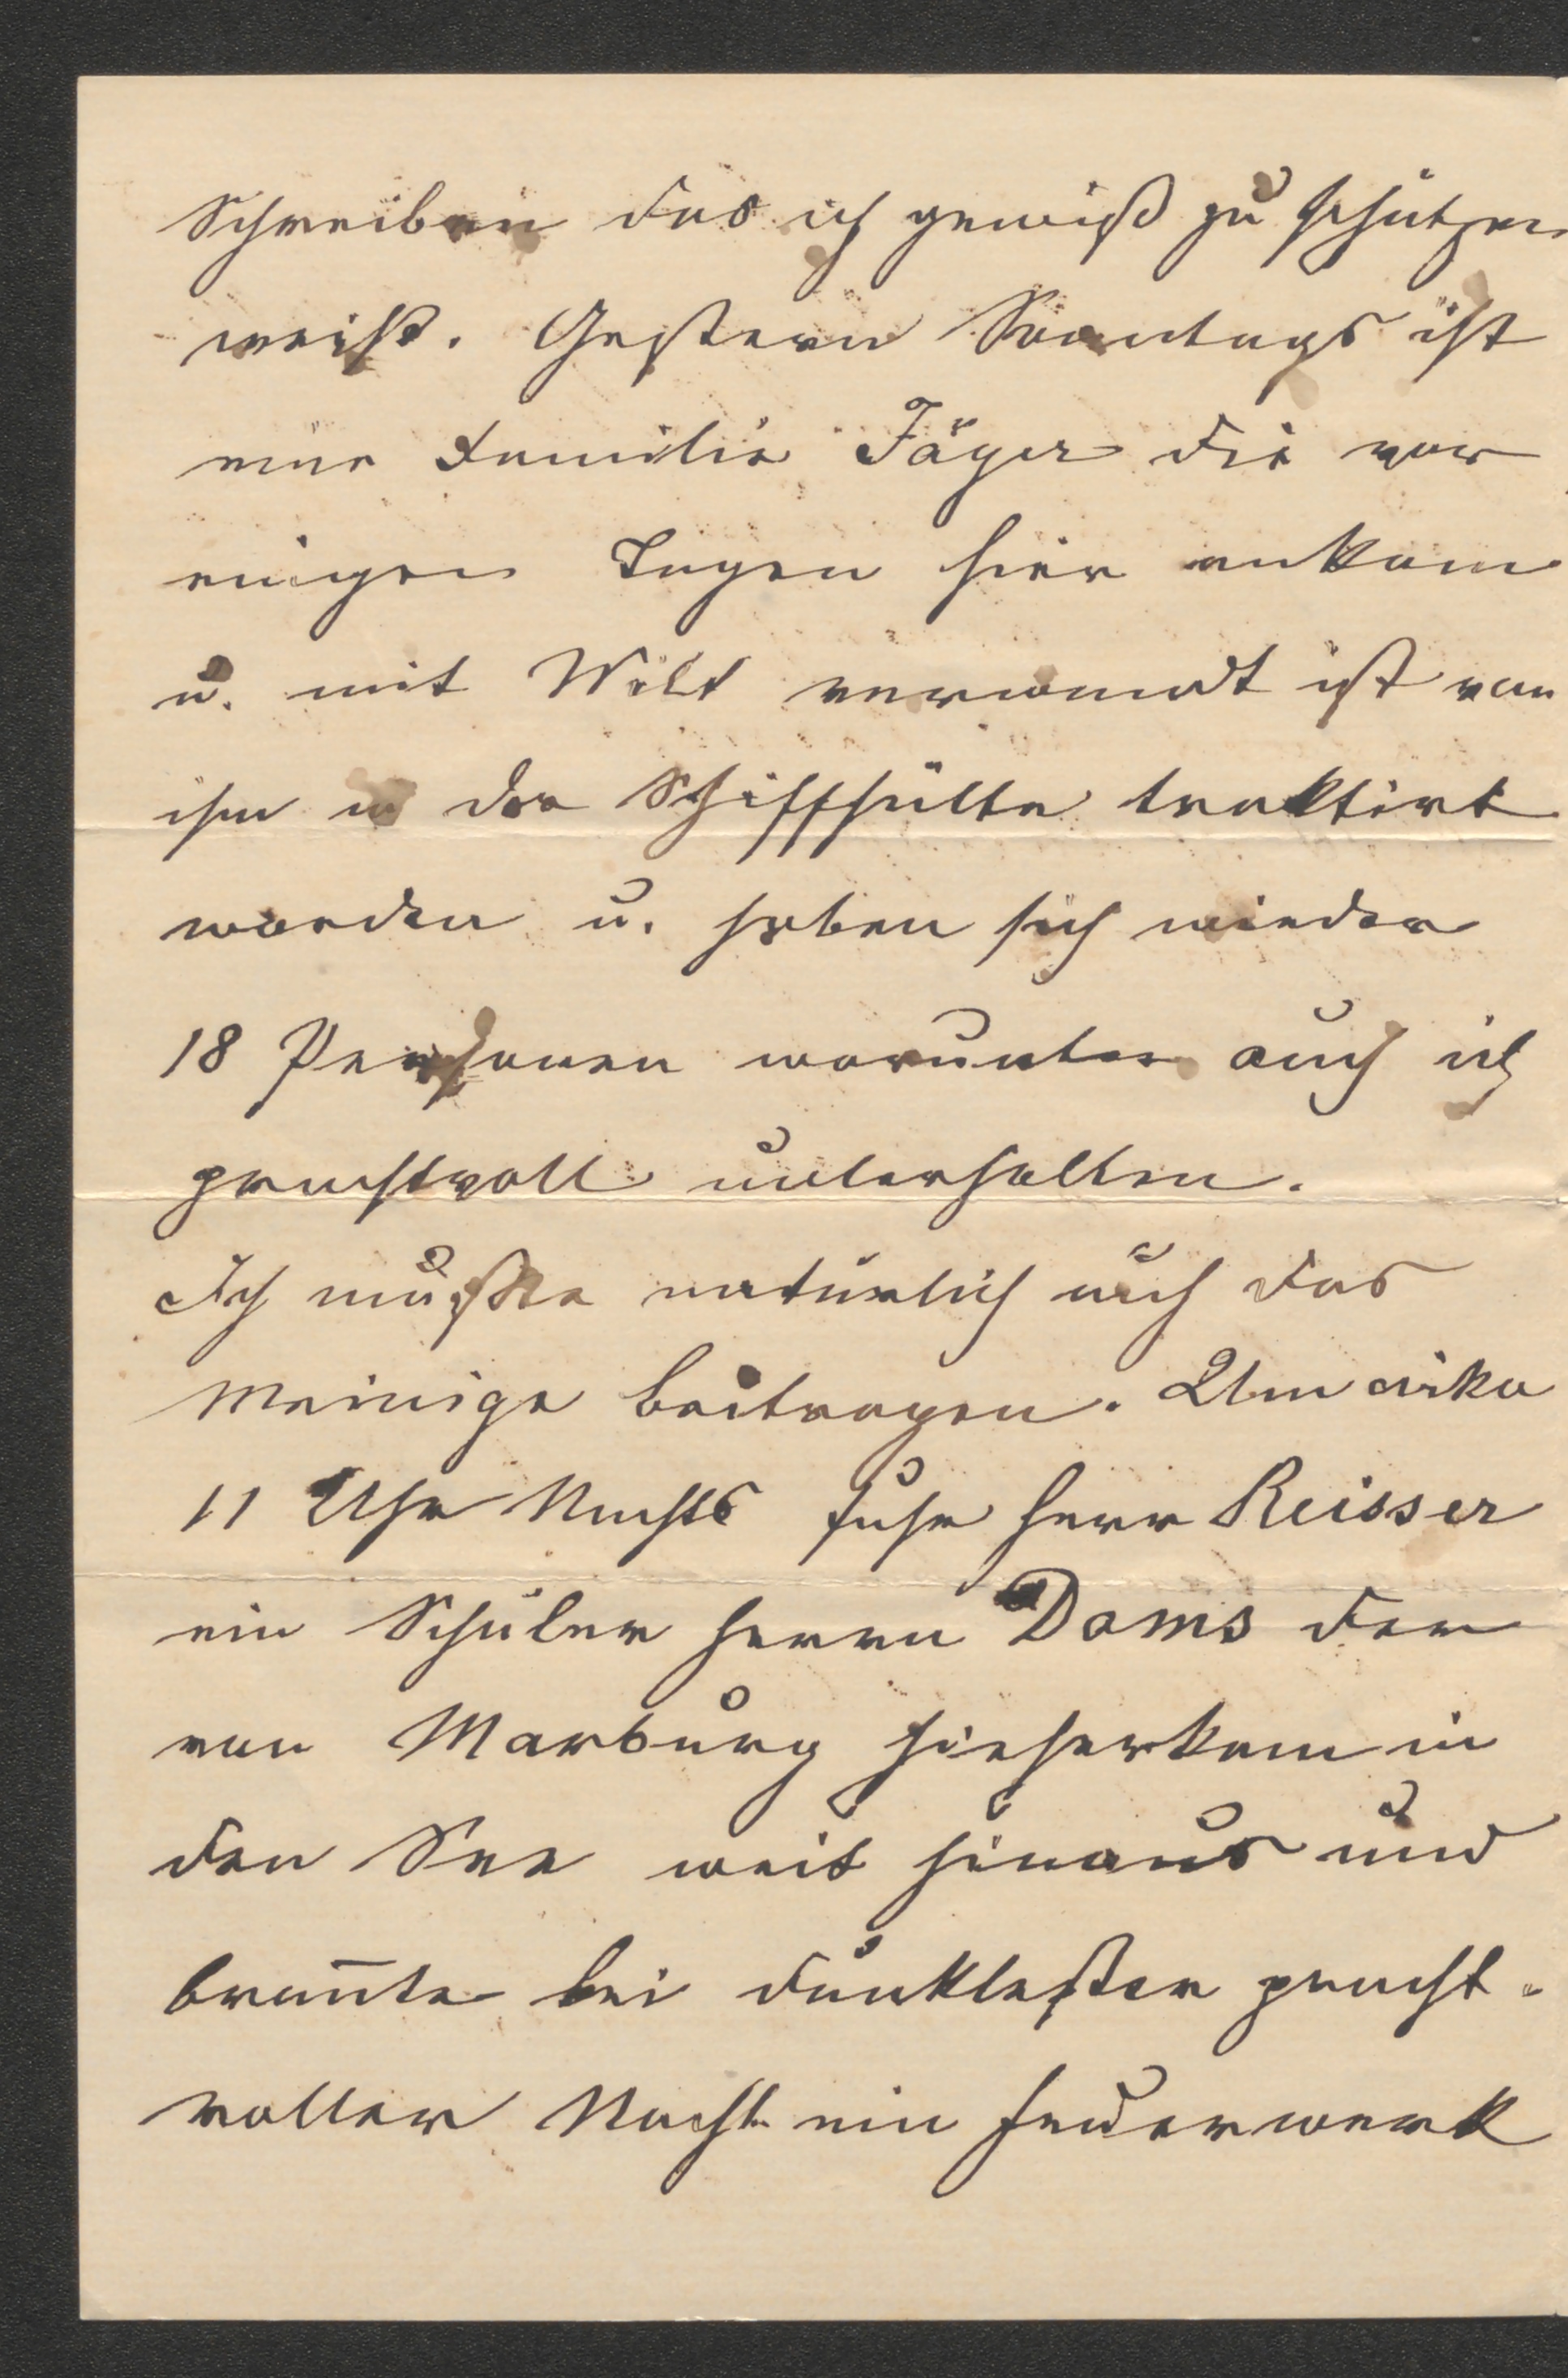 Schreiben das ich gewiß zu schätzen
weiß. Gestern Sonntags ist
eine Familie Jäger die vor
einigen Tagen hier ankam
u. mit Wild verwandt ist von
ihm in der Schiffhütte traktirt
worden u. haben sich wieder
18 Personen worunter auch ich
prachtvoll unterhalten.
Ich mußte natürlich auch das
Meinige beitragen. Um cirka
11 Uhr Nachts fuhr Herr Reisser
ein Schüler Herrn Doms der
von Marburg hieherkam in
den See weit hinaus und
bran̄te bei dunkelster pracht-
voller Nacht ein Feuerwerk